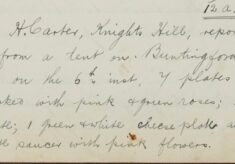 12 a.
H. Carter, Knights Hill, repo
from a tent on Buntingford
on the 6th inst 7 plates
ked with pink & green roses;
te; 1 green & white cheese plate a
e saucer with pink flowers.